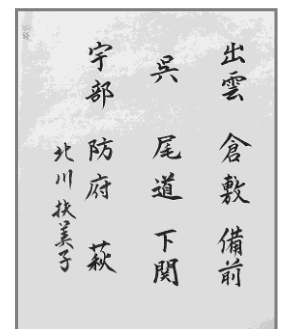 出雲 倉敷 備前
呉 尾道 下関
宇部 防府 萩
北川扶美子